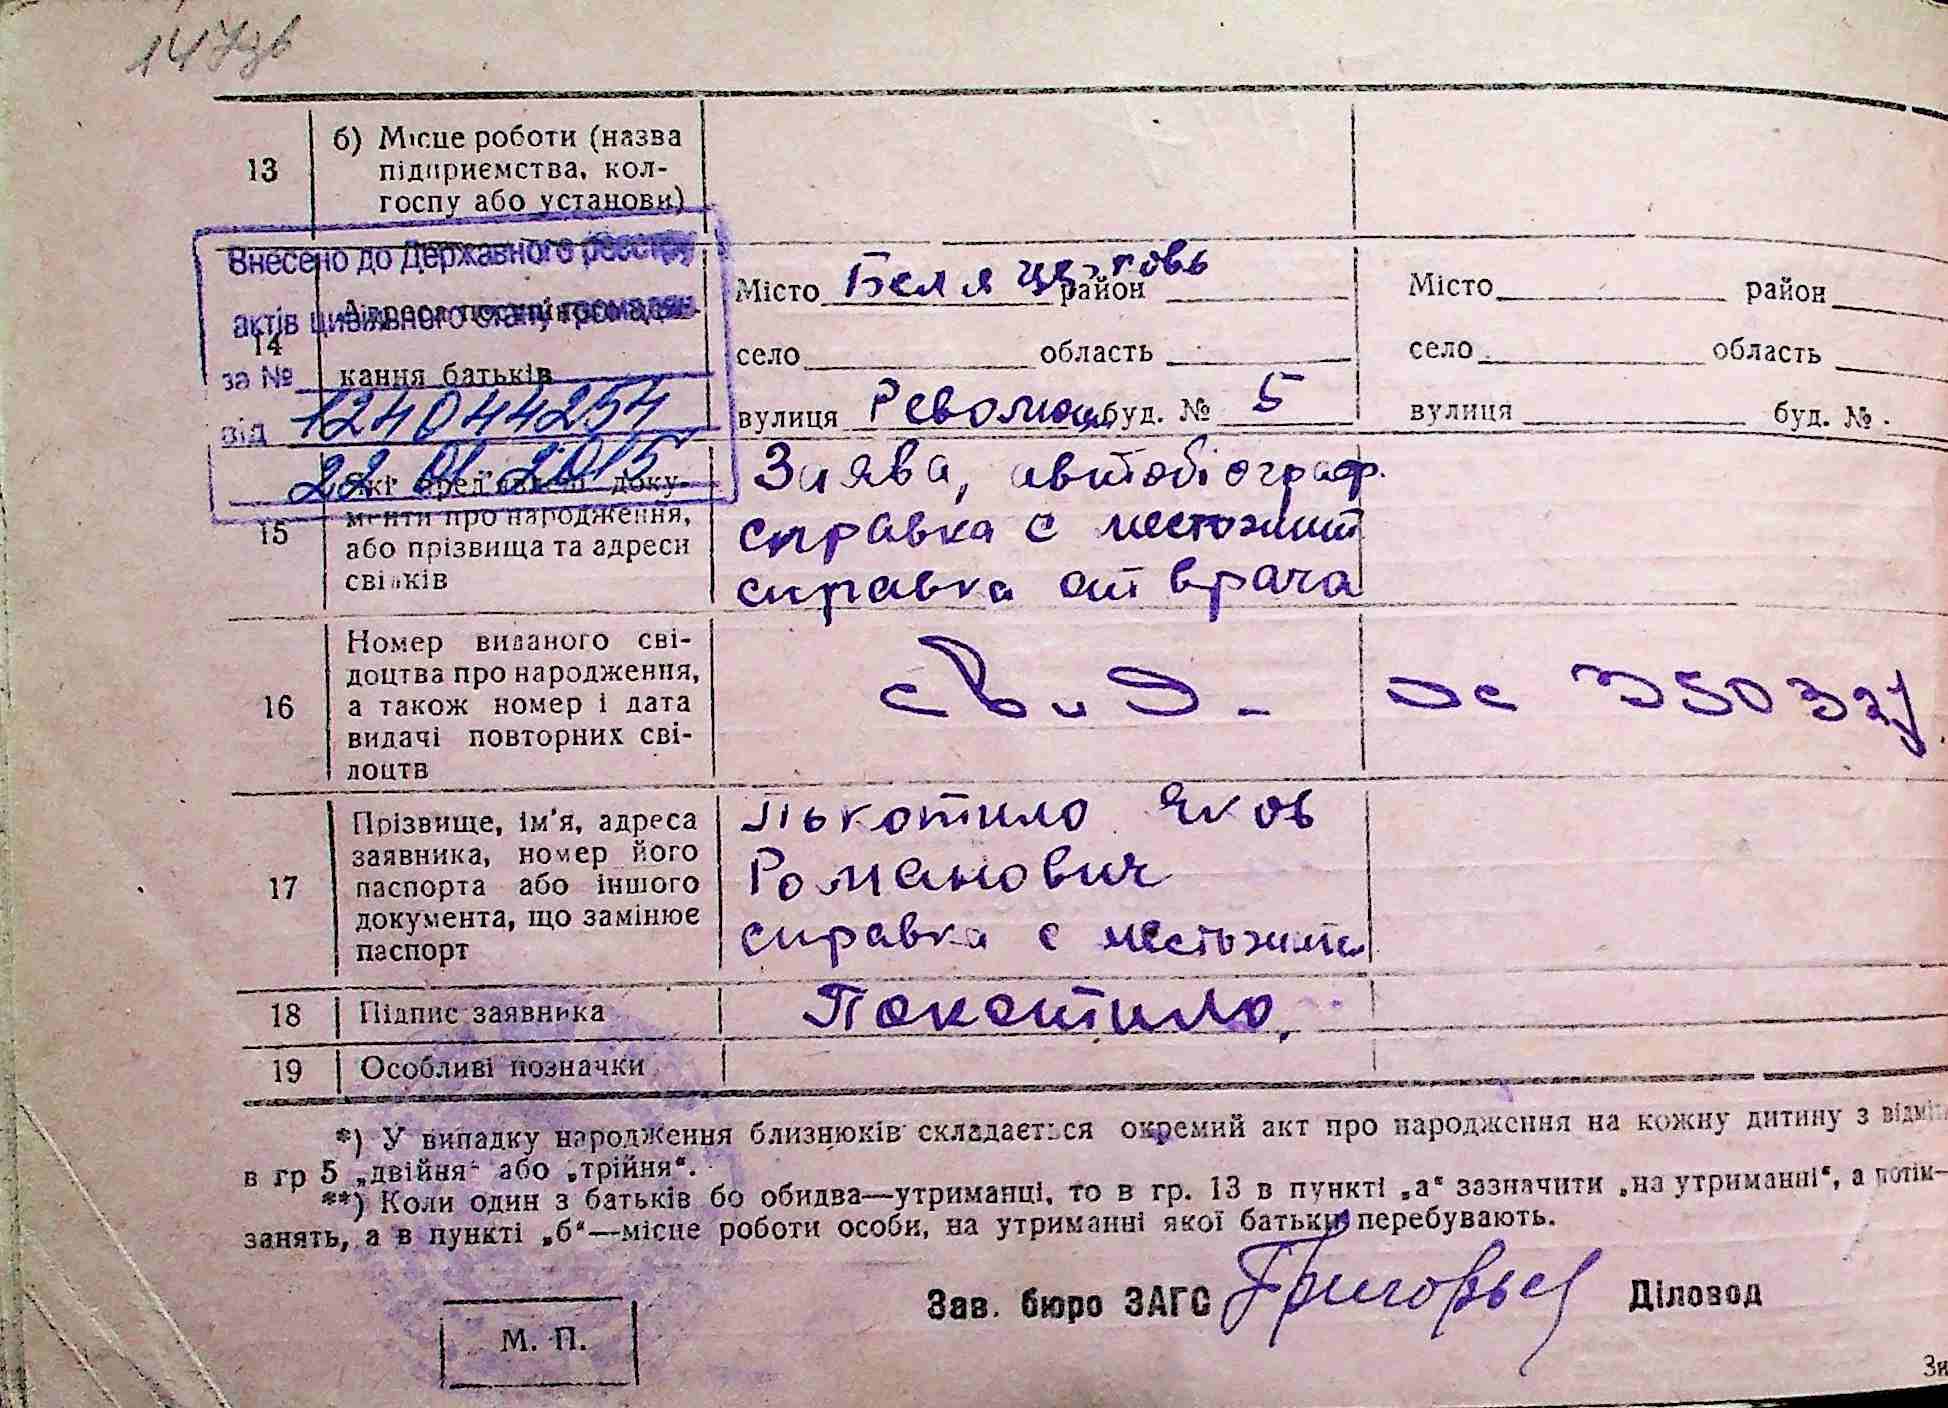 147зв
13
б) Місце роботи (назва
підприємства, кол-
госпу або установи)
Внесено до Державного реєстру
актів цивільного стану громадян
за №
124044254
від
22 01 2015
14
Адреса
кання батьків
Місто Беля церковь район
село область
вулиця Революц буд. № 5
Місто район
село область
вулиця буд. №
15
які пред'явлені доку-
менти про народження,
або прізвища та адреси
свідків
Заява, автобіограф.
справка с местожит
справка от врача
16
Номер виданого сві-
доцтва про народження,
а також номер і дата
видачі повторних сві-
доцтв
свид-
17
Прізвище, ім'я, адреса
заявника, номер його
паспорта або іншого
документа, що замінює
паспорт
Покотило Яков
Романович
справка с местожит
18
Підпис заявника
Покотило,
19
Особливі позначки
*) У випадку народження близнюків складається окремий акт про народження на кожну дитину з відмі
в гр 5 „двійня“ або „трійня“.
**) Коли один з батьків бо обидва—утриманці, то в гр. 13 в пункті „а“ зазначити „на утриманні“, а потім—
занять, а в пункті „б“—місце роботи особи, на утриманні якої батьки перебувають.
Зав. бюро ЗАГС Григорьев Діловод
М. П.
Зи